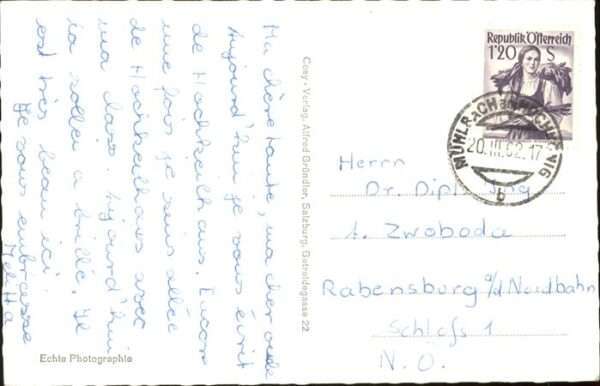 Ma chère tante, ma cher oncle
Aujourd'hui je vous écrit
de Hochkeilhaus. Encore
une fois je suis allée
de Hochkeilhaus avec
ma class. Aujourd'hui
la soleil a brillé. Il
est très beau ici.
Je vous embrasse
Cosy-Verlag, Alfred Gründler, Salzburg, Getreidegasse 22
Echte Photographie
Republik Österreich
1'20 S
MÜHLBACH am HOCHKÖNIG
20.III.62.17
b
Herrn
Dr. Dipl. Ing.
A. Zwoboda
Rabensburg a/d Nordbahn
Schloss 1
N.Ö.